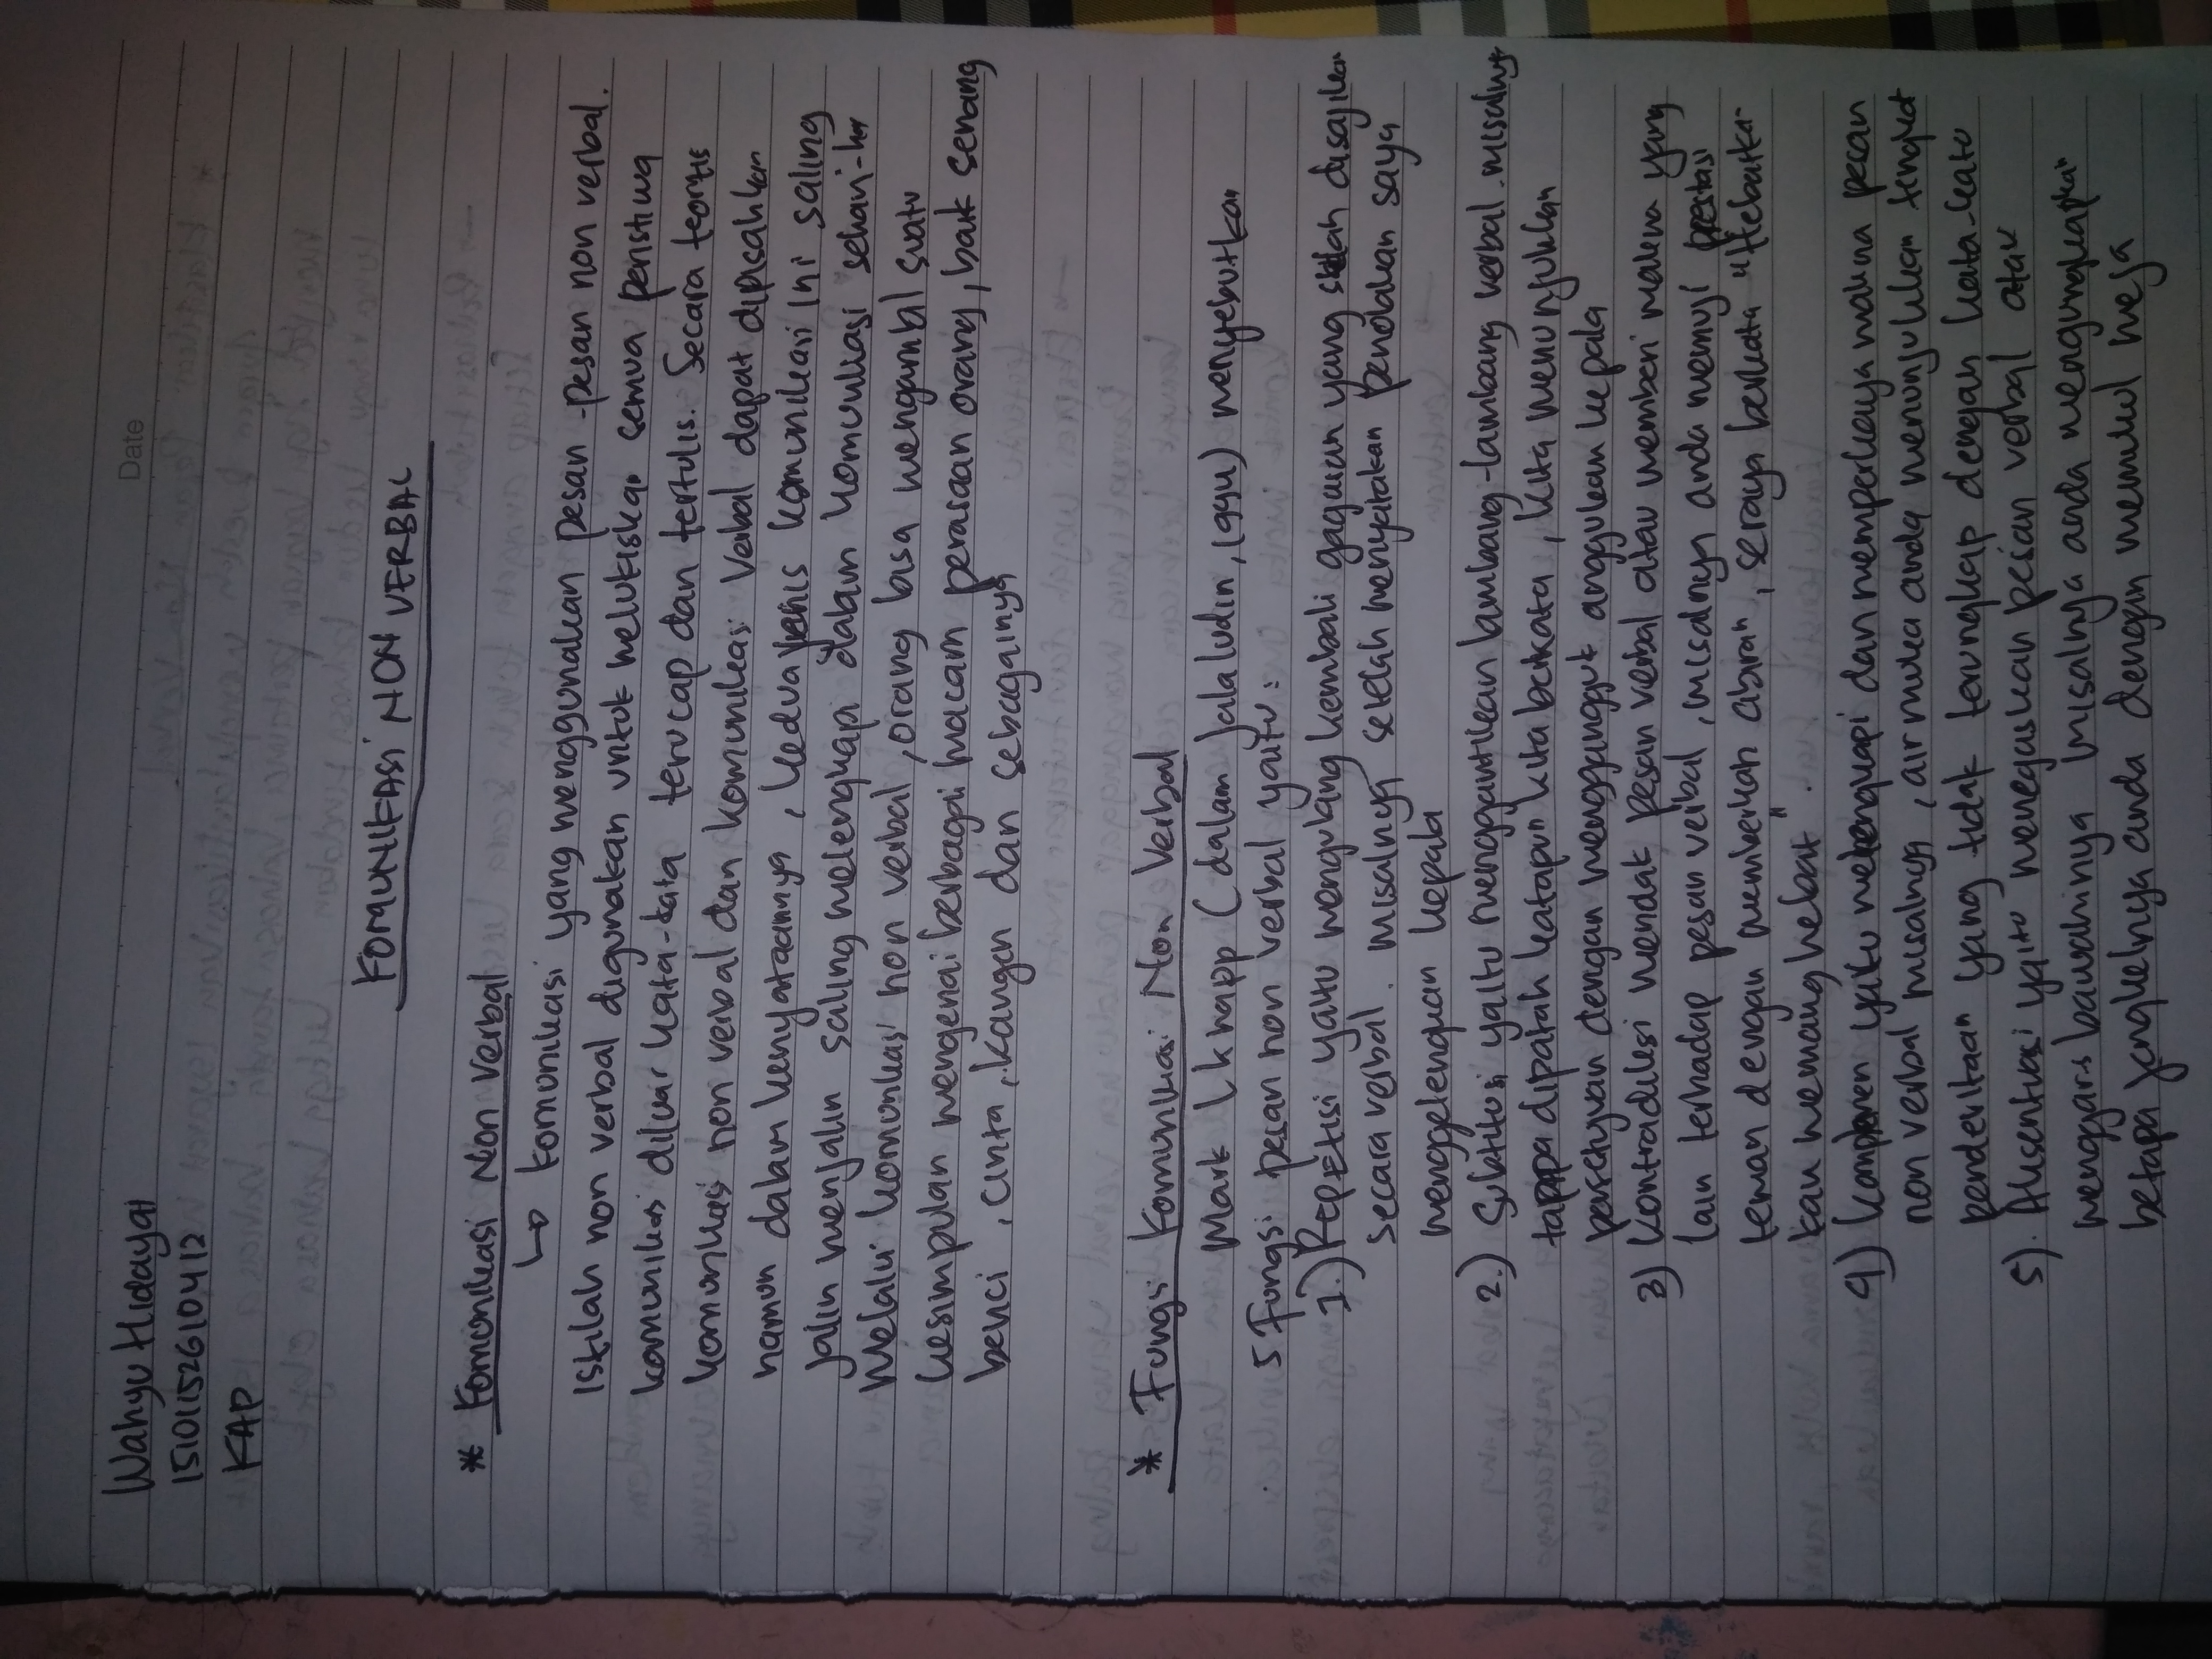 Date
Wahyu Hidayat
15101152610412
KAP
KOMUNIKASI NON VERBAL
* Komunikasi Non Verbal
↳ komunikasi yang menggunakan pesan-pesan non verbal.
Istilah non verbal digunakan untuk melukiskan semua peristiwa
komunikasi diluar kata-kata terucap dan tertulis. Secara teoritis
komunikasi non verbal dan komunikasi verbal dapat dipisahkan
namun dalam kenyataannya, kedua jenis komunikasi ini saling
jalin menjalin saling melengkapi dalam komunikasi sehari-har
Melalui komunikasi non verbal, orang bisa mengambil suatu
kesimpulan mengenai berbagai macam perasaan orang, baik senang
benci, cinta, kangen dan sebagainya
* Fungsi Komunikasi Non Verbal
Mark L knapp (dalam Jalaludin, 1994) menyebutkan
5 Fungsi pesan non verbal yaitu:
1.) Repetisi yaitu mengulang kembali gagasan yang sudah disajikan
secara verbal. misalnya setelah menyatakan penolakan saya
menggelengkan kepala
2.) Subtitusi yaitu menggantikan lambang-lambang verbal. misalnya
tanpa dipatah katapun kita berkata, kita menunjukkan
persetujuan dengan menggangguk anggukan kepala
3) Kontradiksi menolak pesan verbal atau memberi makna yang
lain terhadap pesan verbal, misalnya anda memuji prestasi
teman dengan memberkan cibiran, seraya berkata "Hebat ka-
kau memang hebat".
4) Komplemen yaitu melengkapi dan memperkaya makna pesan
non verbal misalnya, air muka anda menunjukkan tingkat
penderitaan yang tidak terungkap dengan kata-kata
5). Aksentuasi yaitu menegaskan pesan verbal atau
menggaris bawahinya misalnya anda mengungkapkan
betapa jengkelnya anda dengan memukul meja